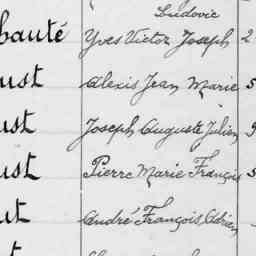 Ludovic
hauté Yves Victor Joseph 2
ust Alexis Jean Marie 5
ust Joseph Auguste Julien 9
ust Pierre Marie François 5
ut André François Adrien